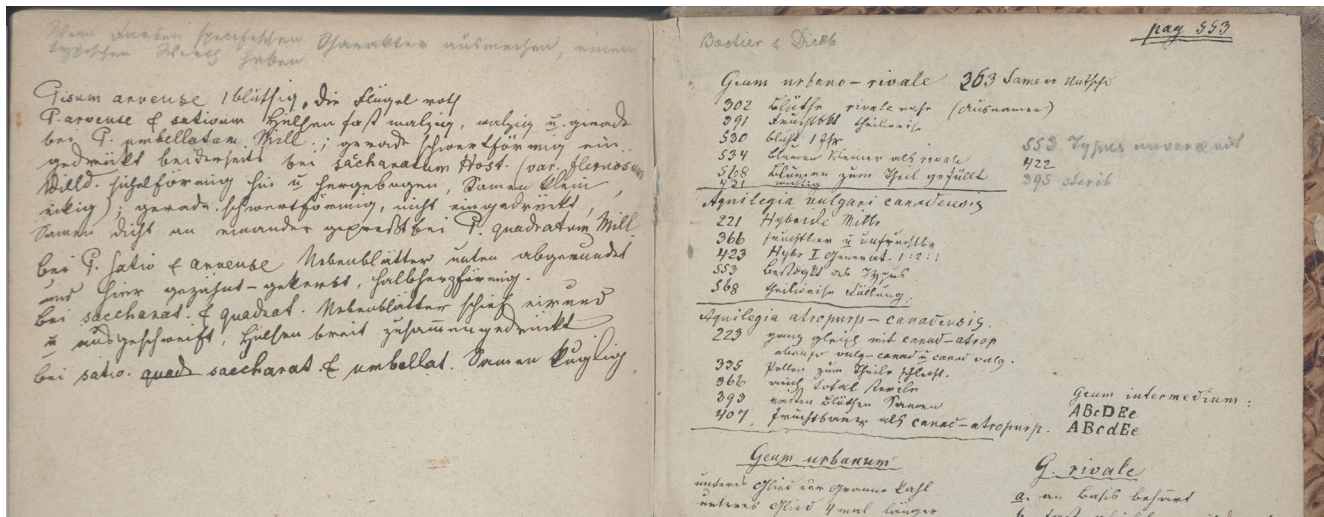 Wenn Farben specifischen Charakter ausmachen, einen
typischen Werth haben
Pisum arvense 1 blüthig, die Flügel roth
P. arvense & sativum Hülsen fast walzig, walzig u. gerade
bei P. umbellatum Mill.; gerade schwertförmig ein-
gedrückt beiderseits bei saccharatum Host. (var. flexuosum
Willd. sichelförmig hin u hergebogen, Samen klein,
eckig); gerade schwertförmig, nicht eingedrückt,
Samen dicht an einander gepresst bei P. quadratum Mill.
bei P. sativ & arvense Nebenblätter unten abgerundet
und hier gezähnt-gekerbt, halbherzförmig.
bei saccharat. & quadrat. Nebenblätter schief eirund
u ausgeschweift, Hülsen breit zusammengedrückt
bei sativ. quad saccharat. & umbellat. Samen kuglig
pag 553
Bastier & Dickb
Geum urbano-rivale 363 Samen
302 Blüthe rivale nahe (Ausnamen)
391 Fruchtbkt theilweise
530 blüht 1 Jhr
534 Blumen kleiner als rivale
568 Blumen zum Theil gefüllt
421 wichtig
553 Typus unverändt
422
395 steril
Aquilegia vulgari canadensis
221 Hybride Mitte
366 fruchtbar u unfruchtbr
423 Hybr I Generat. 1:2:1
553 Bestätgt als Typus
568 theilweise Füllung
Aquilegia atropurp-canadensis.
223 ganz gleich mit canad-atrop
ebenso vulg-canad u canad vulg.
335 Pollen zum Theile schlecht.
366 auch total sterile
393 ersten Blüthen Samen
407, fruchtbarer als canad-atropurp.
Geum intermedium:
ABcDEe
ABcdEe
Geum urbanum
unteres Glied der Granne kahl
unteres Glied 4 mal länger
G. rivale
a. an Basis behaart